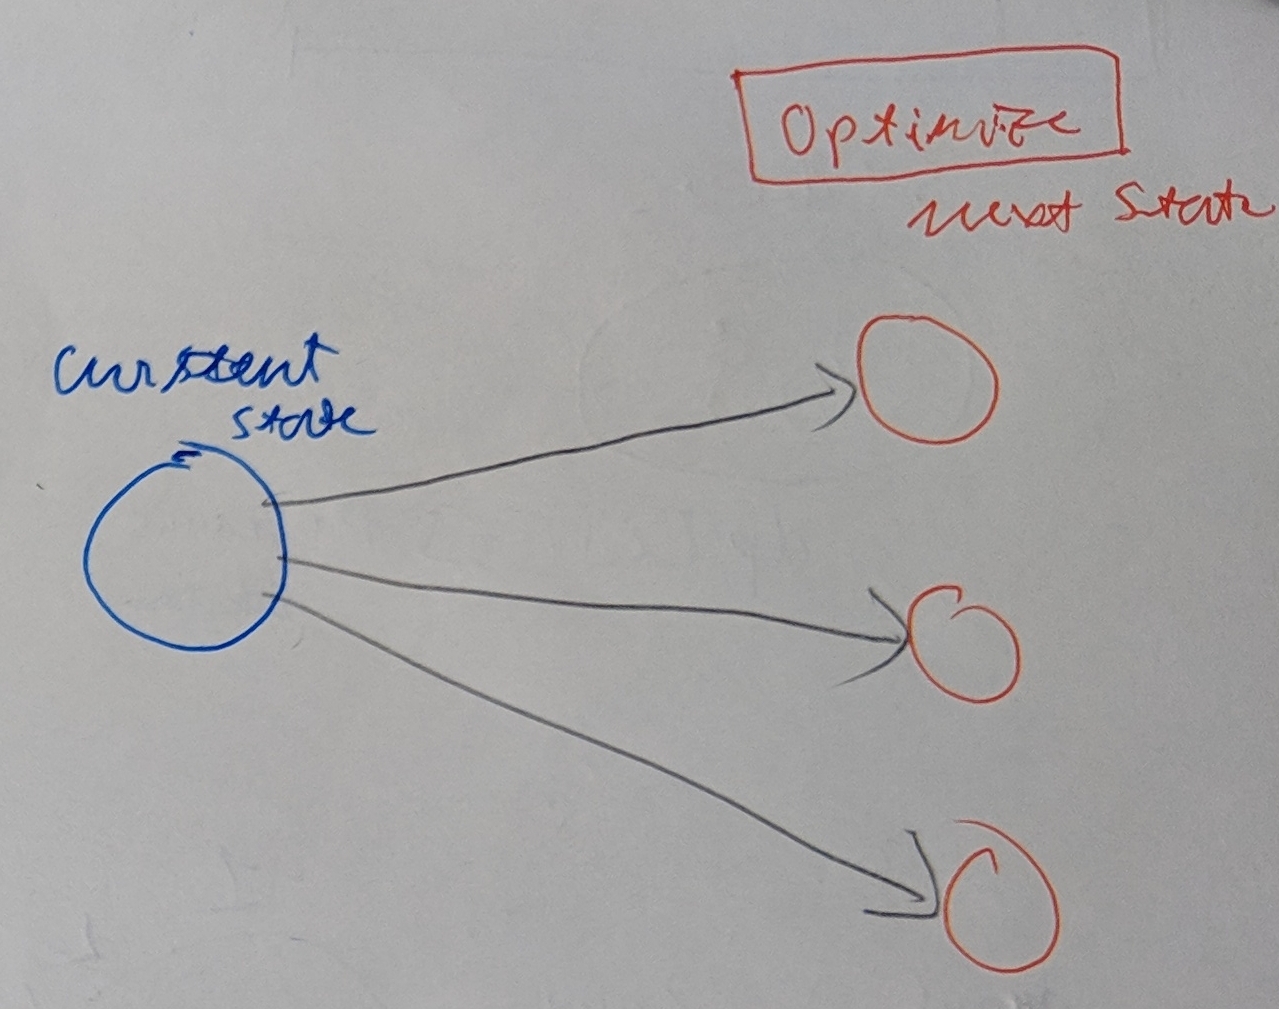 Optimize
next state
current
state